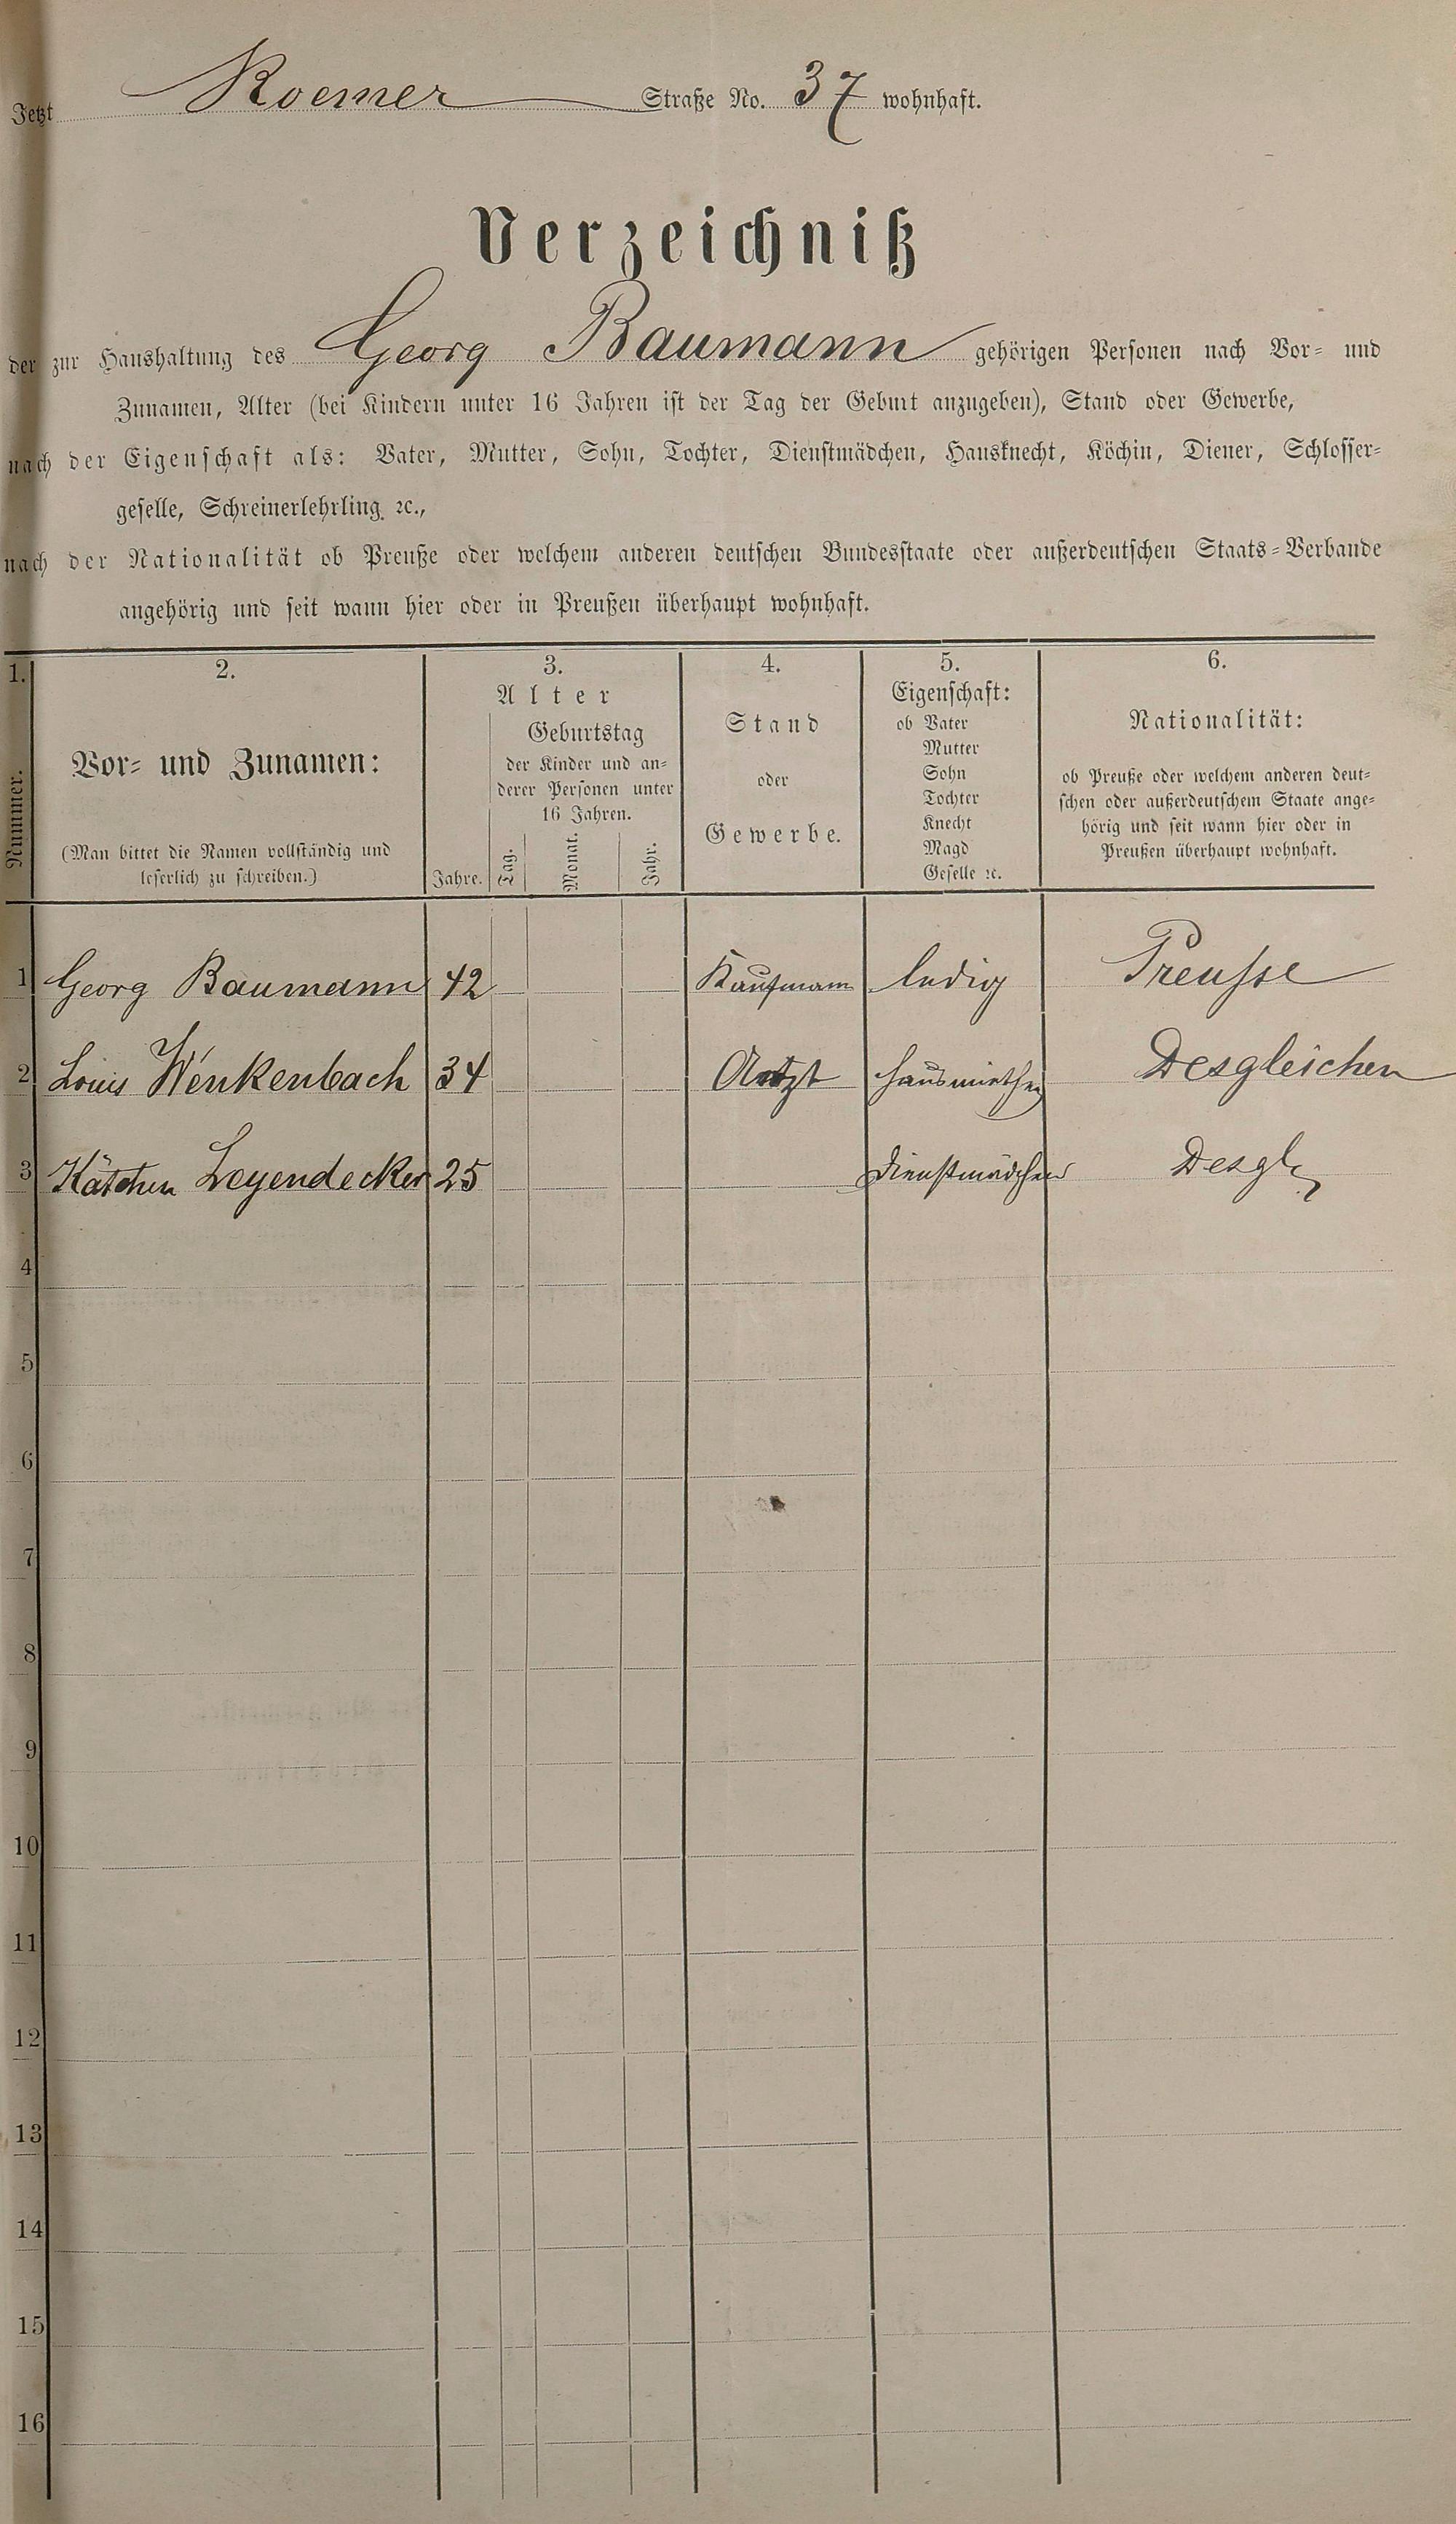 Jetzt Roemer Straße No. 37 wohnhaft.
Verzeichniß
der zur Haushaltung des Georg Baumann gehörigen Personen nach Vor- und
Zunamen, Alter (bei Kindern unter 16 Jahren ist der Tag der Geburt anzugeben), Stand oder Gewerbe,
nach der Eigenschaft als: Vater, Mutter, Sohn, Tochter, Dienstmädchen, Hausknecht, Köchin, Diener, Schlosser-
geselle, Schreinerlehrling ꝛc.,
nach der Nationalität ob Preuße oder welchem anderen deutschen Bundesstaate oder außerdeutschen Staats-Verbande
angehörig und seit wann hier oder in Preußen überhaupt wohnhaft.
1. 2. 3. 4. 5. 6.
Nummer.
Vor- und Zunamen:
(Man bittet die Namen vollständig und
leserlich zu schreiben.)
Alter
Jahre.
Geburtstag
der Kinder und an-
derer Personen unter
16 Jahren.
Tag. Monat. Jahr.
Stand
oder
Gewerbe.
Eigenschaft:
ob Vater
Mutter
Sohn
Tochter
Knecht
Magd
Geselle ꝛc.
Nationalität:
ob Preuße oder welchem anderen deut-
schen oder außerdeutschem Staate ange-
hörig und seit wann hier oder in
Preußen überhaupt wohnhaft.
1 Georg Baumann 42 Kaufmann ledig Preusse
2 Louis Wenkenbach 34 Arzt Desgleichen
3 Kätchen Leyendecker 25 Dienstmädchen Desgl.
4
5
6
7
8
9
10
11
12
13
14
15
16